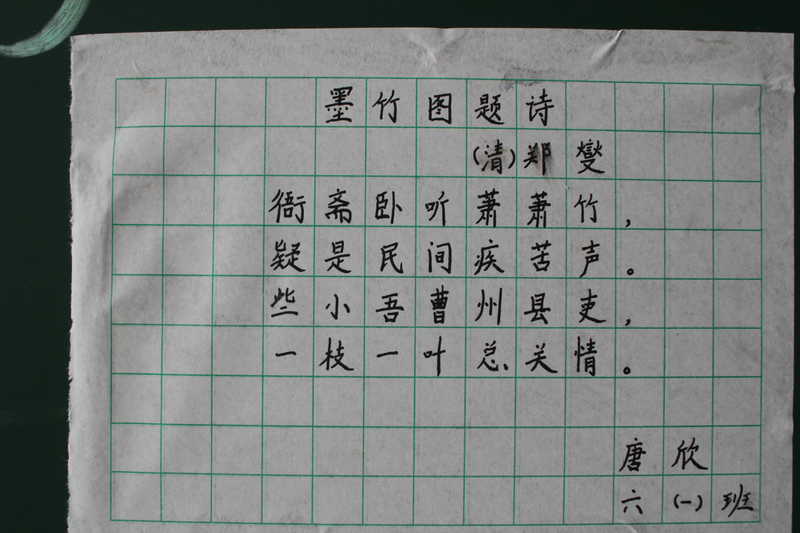 墨竹图题诗
(清)郑燮
衙斋卧听萧萧竹,
疑是民间疾苦声。
些小吾曹州县吏,
一枝一叶总关情。
唐欣
六(一)班